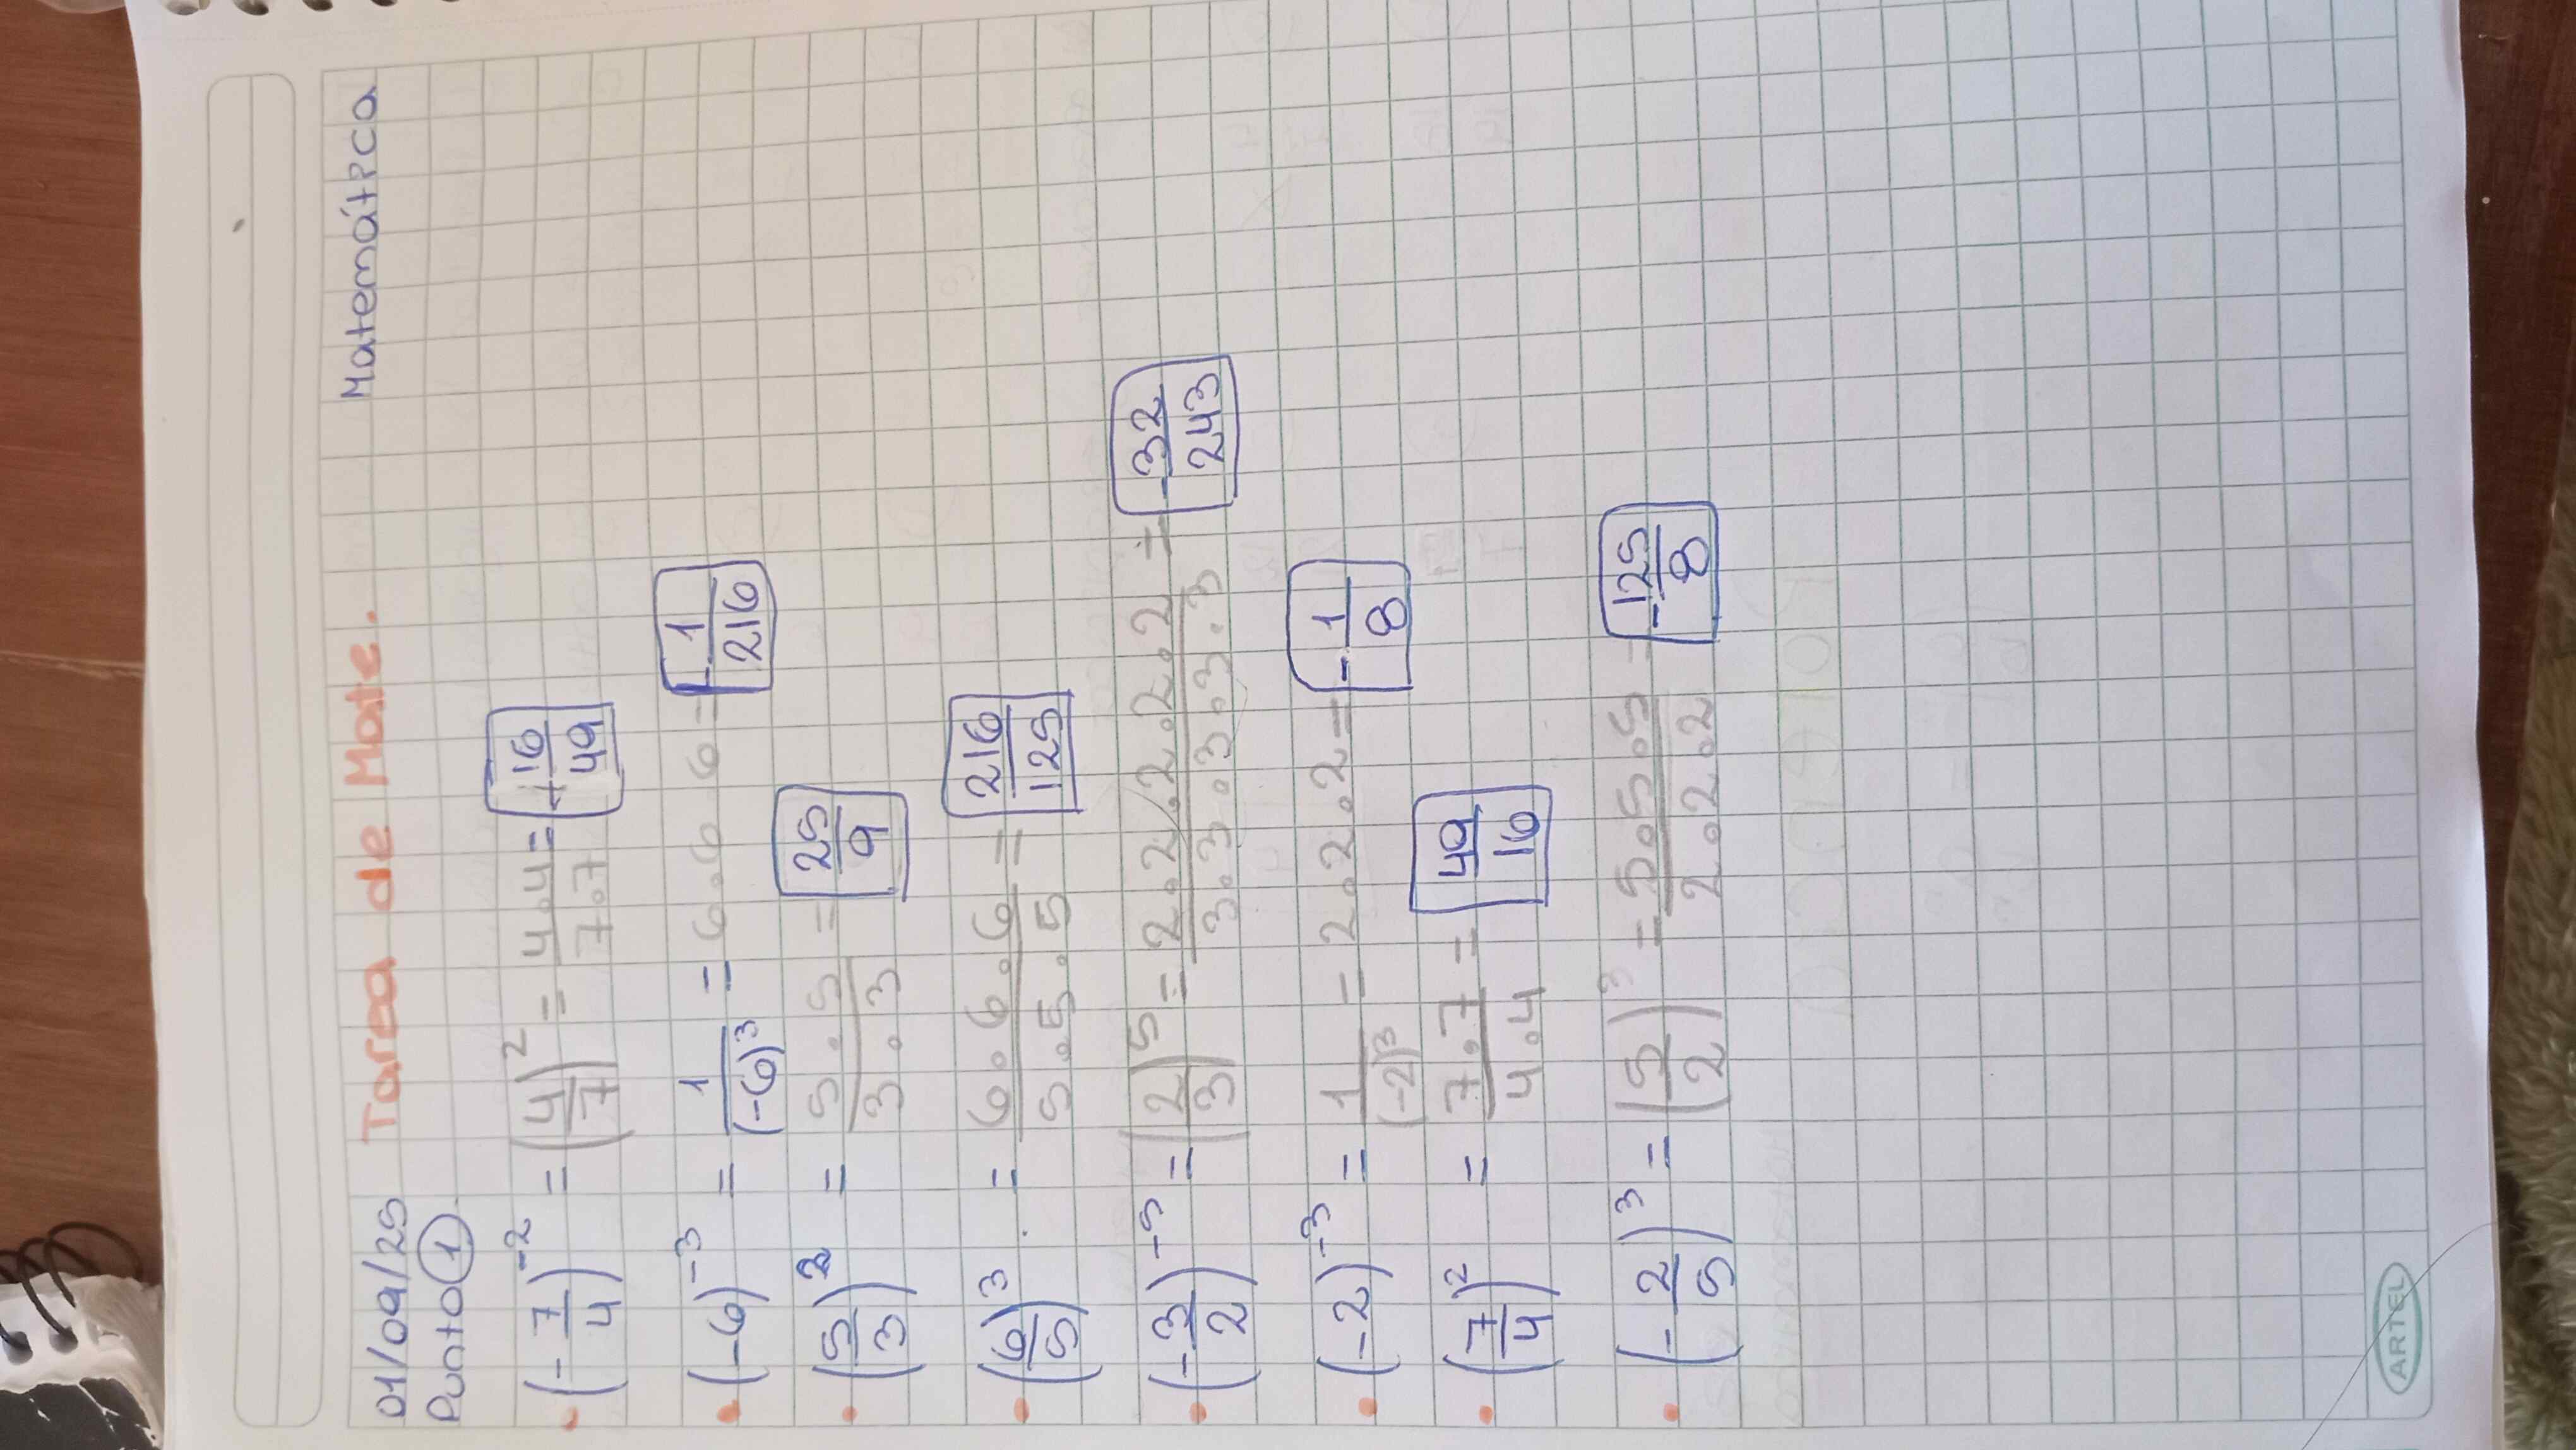 01/09/25 Tarea de Mate. Matemática
Punto 1
• (-7/4)⁻² = (4/7)² = 4.4/7.7 = +16/49
• (-6)⁻³ = 1/(-6)³ = 6.6.6 = -1/216
• (5/3)² = 5.5/3.3 = 25/9
• (6/5)³ = 6.6.6/5.5.5 = 216/125
• (-3/2)⁻⁵ = (2/3)⁵ = 2.2.2.2.2.2/3.3.3.3.3.3 = -32/243
• (-2)⁻³ = 1/(-2)³ = 2.2.2 = -1/8
• (7/4)² = 7.7/4.4 = 49/16
• (-2/5)³ = (5/2)³ = 5.5.5/2.2.2 = -125/8
ARTEL